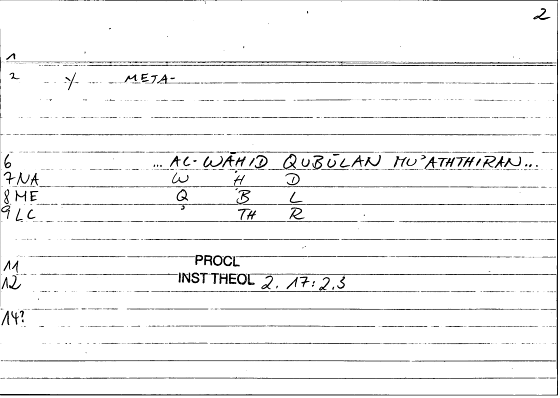 2
1
2 y META-
6 ... AL-WĀḤID QUBŪLAN MU'ATHTHIRAN...
7 NA W Ḥ D
8 ME Q B L
9 LC ' TH R
11 PROCL
12 INST THEOL 2. 17:2.3
14?